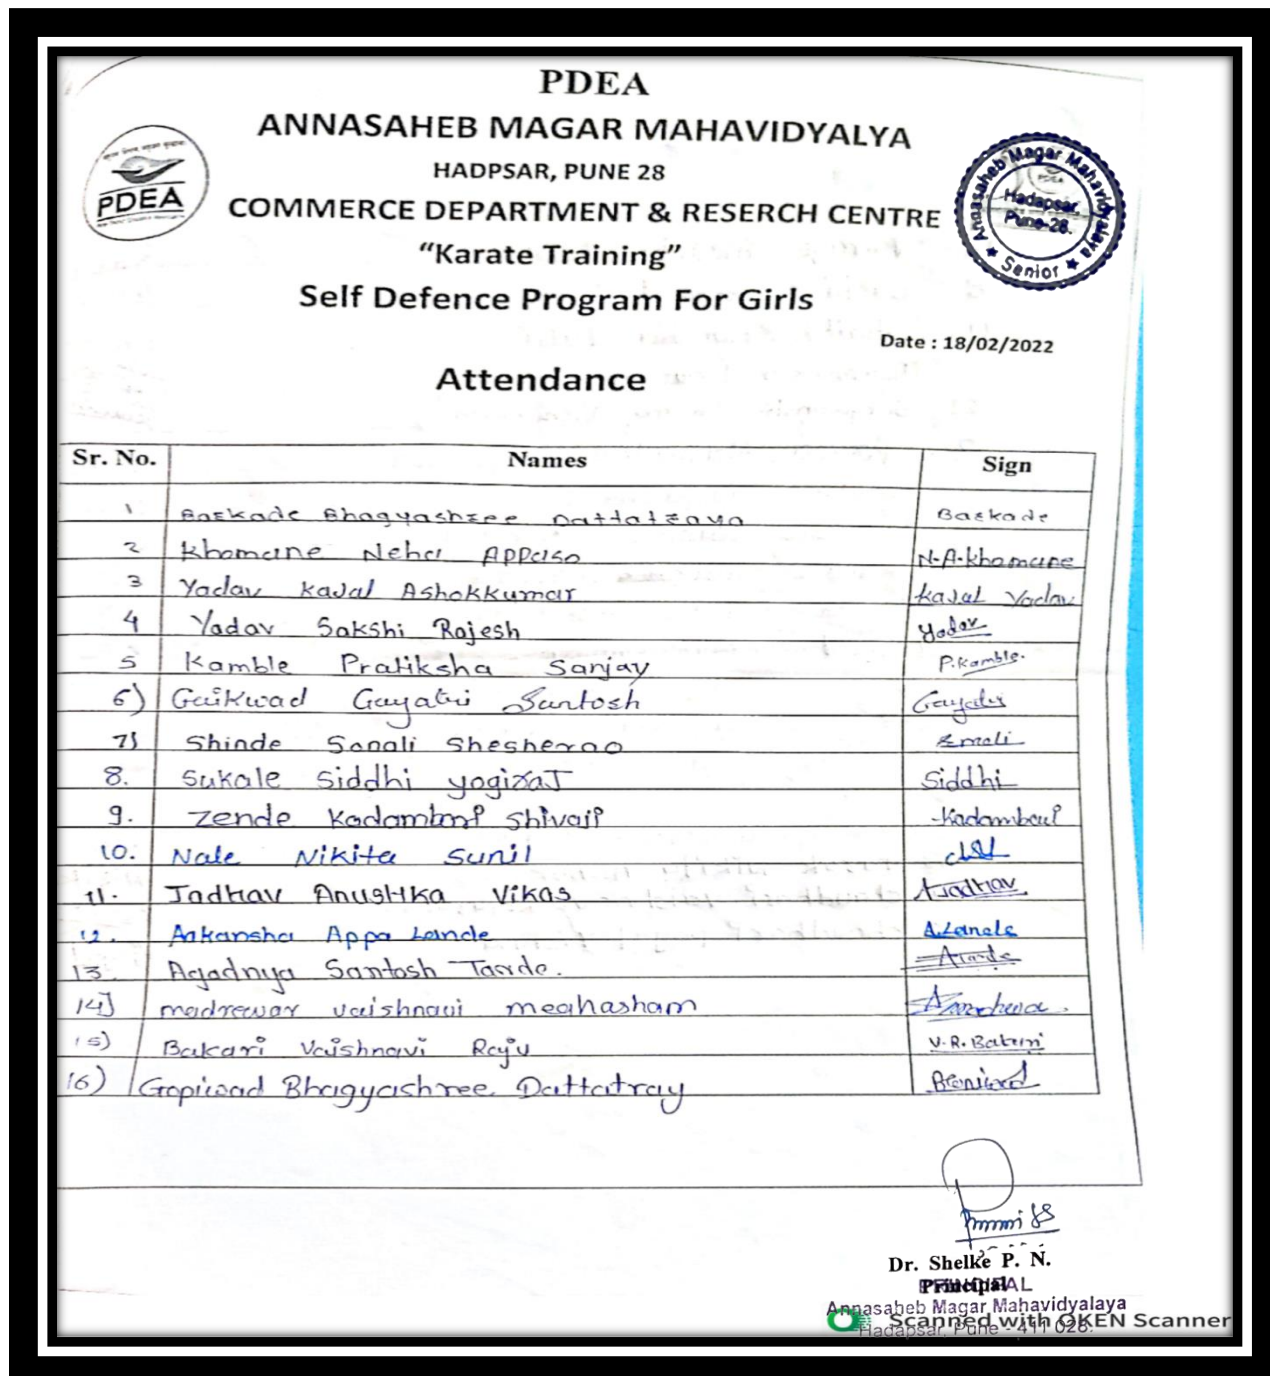 PDEA
ANNASAHEB MAGAR MAHAVIDYALYA
HADPSAR, PUNE 28
COMMERCE DEPARTMENT & RESERCH CENTRE
“Karate Training”
Self Defence Program For Girls
PDEA
Annasaheb Magar Mahavidyalaya
Hadapsar,
Pune-28.
★ Senior ★
Date : 18/02/2022
Attendance
Sr. No. Names Sign
1 Baskade Bhagyashree Dattatraya Baskade
2 Khamane Neha Appaso N.A.khamane
3 Yadav Kajal Ashokkumar Kajal Yadav
4 Yadav Sakshi Rajesh Yadav
5 Kamble Pratiksha Sanjay P.Kamble.
6) Gaikwad Gayatri Santosh Gayatri
7) Shinde Sonali Shesherao
8. Sukale Siddhi yogiraJ Siddhi
9. Zende Kadambari Shivaji Kadambari
10. Nale Nikita Sunil
11. Jadhav AnusHka Vikas A.Jadhav
12. Aakansha Appa Lande A.Lande
13 Agadnya Santosh Tarde.
14] madrewar vaishnavi meghasham
15) Bakari Vaishnavi Raju V.R.Bakari
16) Gopiwad Bhagyashree Dattatray
Dr. Shelke P. N.
Principal
PRINCIPAL
Annasaheb Magar Mahavidyalaya
Hadapsar, Pune - 411 028.
Scanned with OKEN Scanner